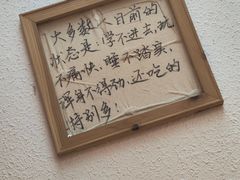 大多数人目前的
状态是：学不进去，玩
不痛快，睡不踏实，
浑身不得劲，还吃的
特别多！